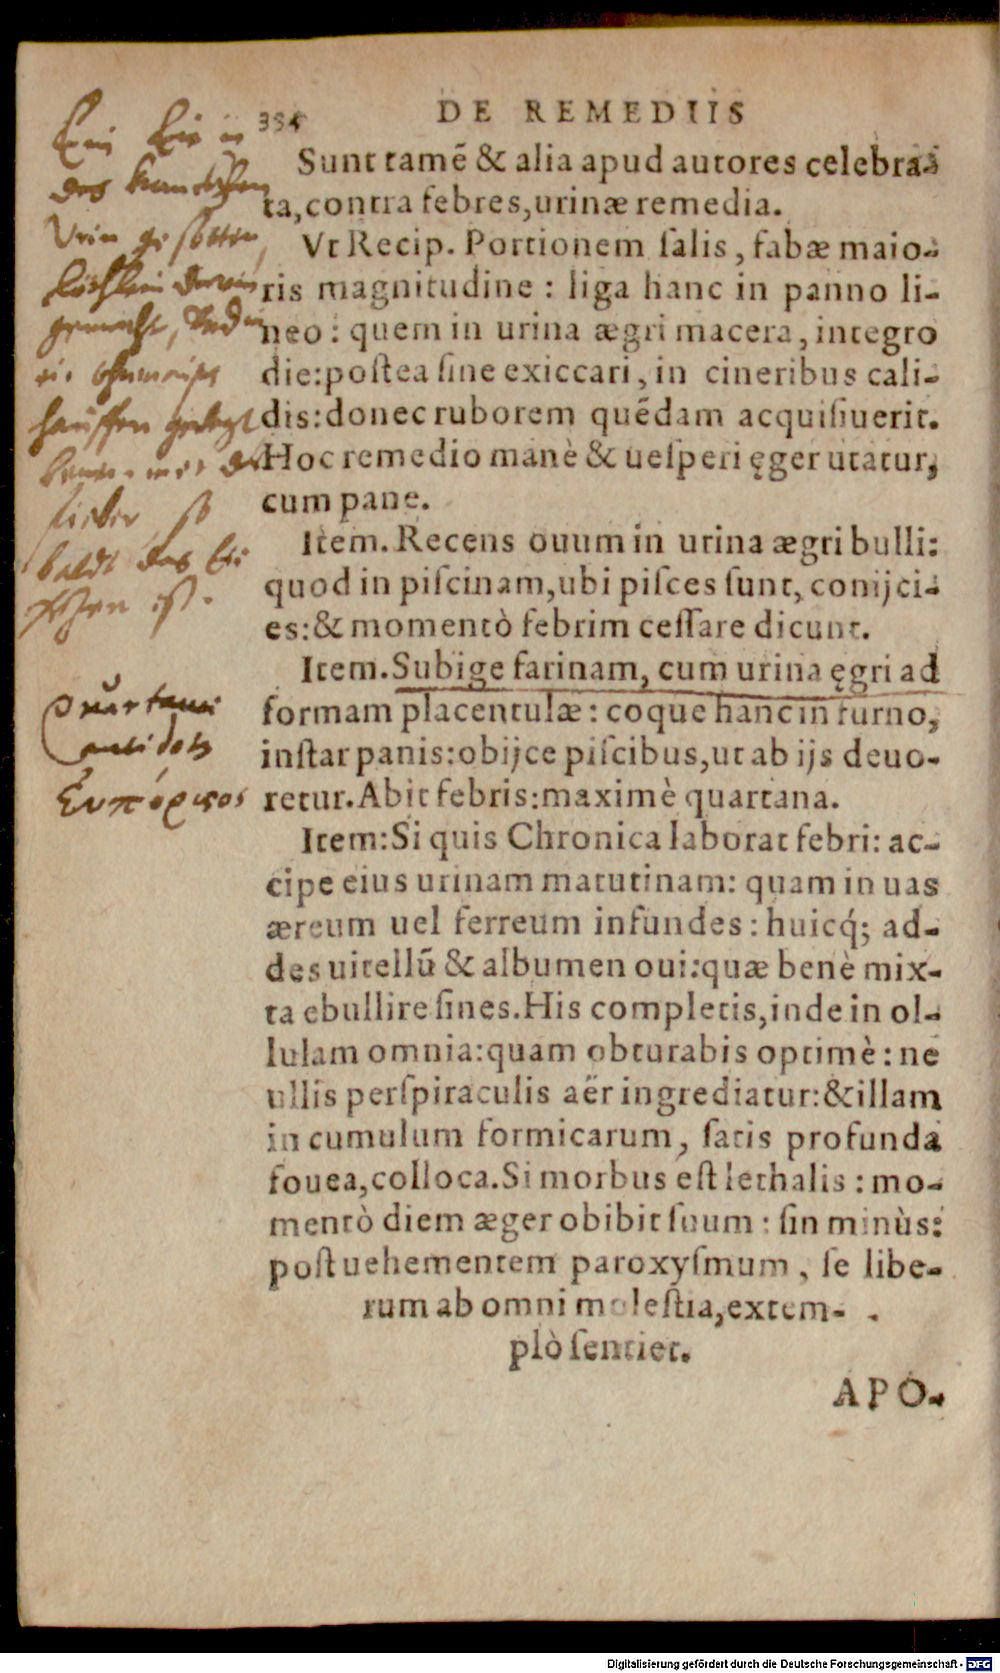 334
DE REMEDIIS
Sunt tamẽ & alia apud autores celebra-
ta, contra febres, urinæ remedia.
Vt Recip. Portionem ſalis, fabæ maio-
ris magnitudine: liga hanc in panno li-
neo: quem in urina ægri macera, integro
die: poſtea ſine exiccari, in cineribus cali-
dis: donec ruborem quẽdam acquiſiuerit.
Hoc remedio manè & ueſperi ęger utatur,
cum pane.
Item. Recens ouum in urina ægri bulli:
quod in piſcinam, ubi piſces ſunt, conijci-
es: & momentò febrim ceſſare dicunt.
Item. Subige farinam, cum urina ęgri ad
formam placentulæ: coque hanc in furno,
inſtar panis: obijce piſcibus, ut ab ijs deuo-
retur. Abit febris: maximè quartana.
Item: Si quis Chronica laborat febri: ac-
cipe eius urinam matutinam: quam in uas
æreum uel ferreum infundes: huicq́; ad-
des uitellũ & albumen oui: quæ benè mix-
ta ebullire ſines. His completis, inde in ol-
lulam omnia: quam obturabis optimè: ne
ullis perſpiraculis aër ingrediatur: & illam
in cumulum formicarum, ſatis profunda
fouea, colloca. Si morbus eſt lethalis: mo-
mentò diem æger obibit ſuum: ſin minùs:
poſt uehementem paroxyſmum, ſe libe-
rum ab omni moleſtia, extem-
plò ſentiet.
APO-
Ein
des
Vrin gesotten,
gemacht,
hauffen gelegt
fieber so
baldt das Ei
ist.
Quartanae
antidoty
Digitalisierung gefördert durch die Deutsche Forschungsgemeinschaft - DFG